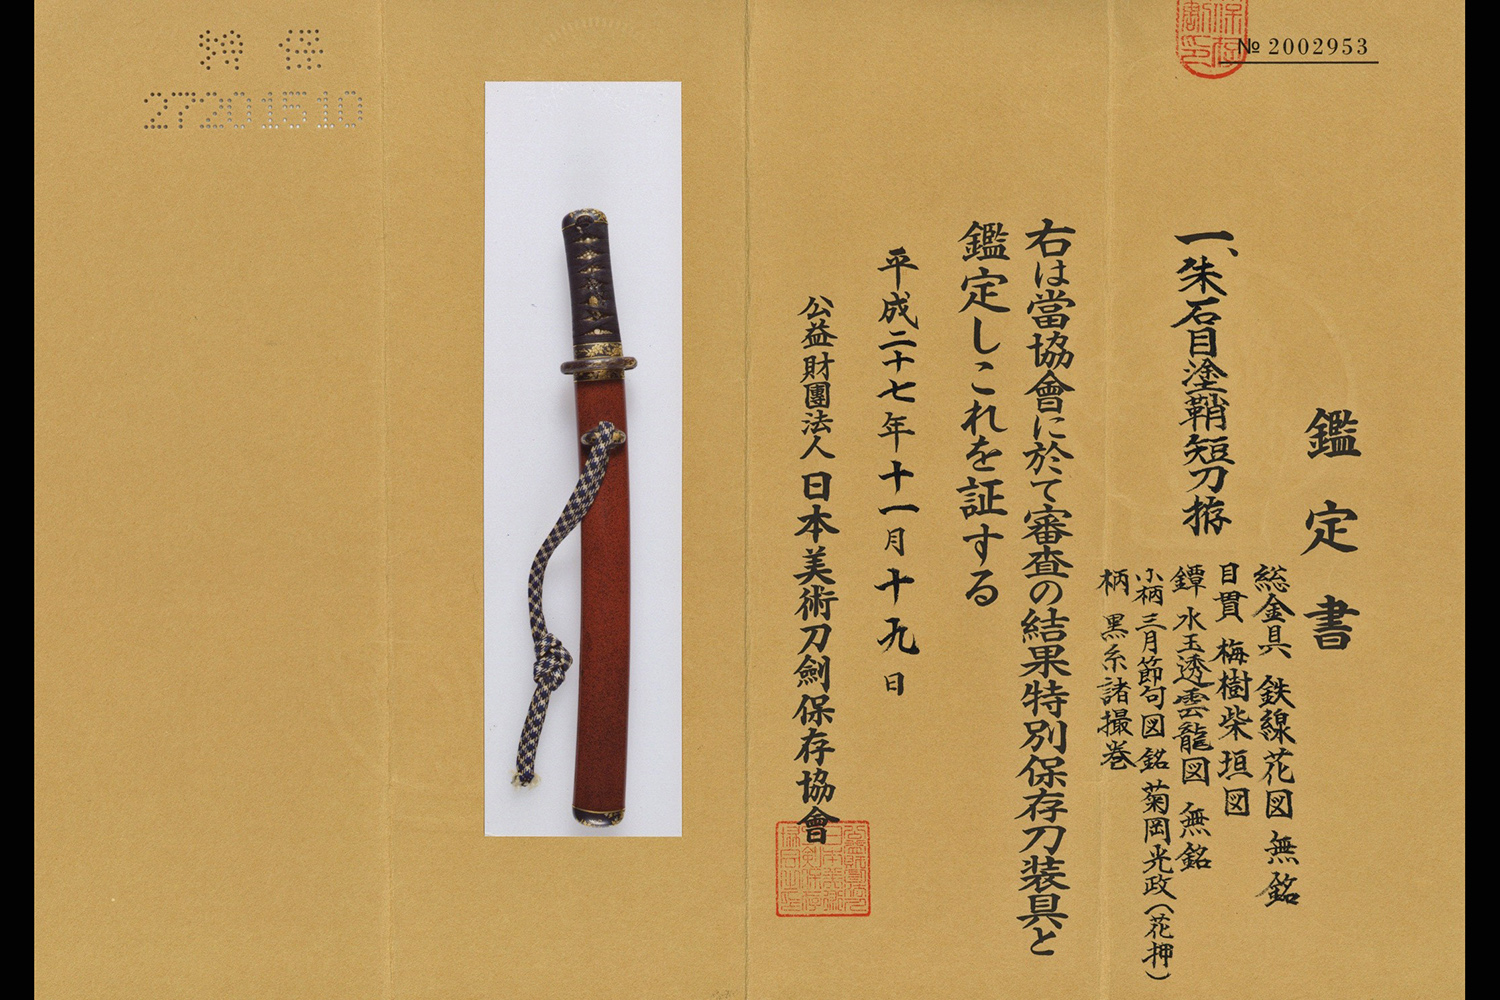 № 2002953
鑑定書
一、朱石目塗鞘短刀拵
総金具 鉄線花図 無銘
目貫 梅樹柴垣図
鐔 水玉透雲龍図 無銘
小柄 三月節句図 銘 菊岡光政(花押)
柄 黒糸諸撮巻
右は當協會に於て審査の結果特別保存刀装具と
鑑定しこれを証する
平成二十七年十一月十九日
公益財團法人 日本美術刀劍保存協會
特 保
27201510